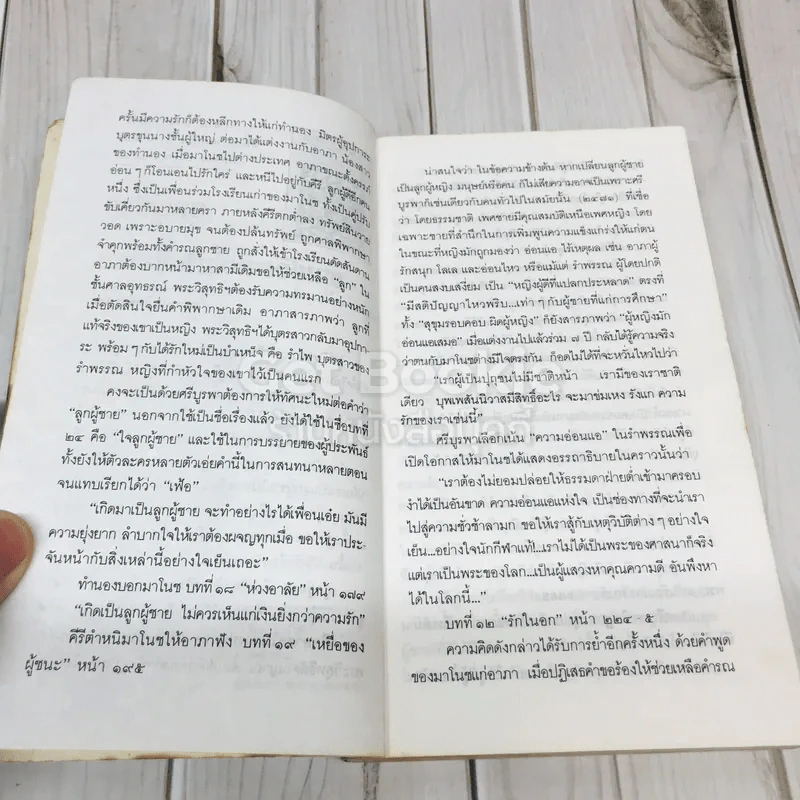 ครั้นมีความรักก็ต้องหลีกทางให้แก่ทำนอง มิตรผู้อุปการะ
บุตรขุนนางชั้นผู้ใหญ่ ต่อมาได้แต่งงานกับอาภา น้องสาว
ของทำนอง เมื่อมาโนชไปต่างประเทศ อาภาขณะตั้งครรภ์
อ่อนๆ ก็โอนเอนไปรักใคร่ และหนีไปอยู่กับคีรี ลูกผู้ดีอีกคน
หนึ่ง ซึ่งเป็นเพื่อนร่วมโรงเรียนเก่าของมาโนช ทั้งเป็นคู่ปรับ
ขับเคี่ยวกันมาหลายครา ภายหลังคีรีตกต่ำลง ทรัพย์สินวาย
วอด เพราะอบายมุข จนต้องปล้นทรัพย์ ถูกศาลพิพากษา
จำคุกพร้อมทั้งคำรณลูกชาย ถูกสั่งให้เข้าโรงเรียนดัดสันดาน
อาภาต้องบากหน้ามาหาสามีเดิมขอให้ช่วยเหลือ “ลูก” ใน
ชั้นศาลอุทธรณ์ พระวิสุทธิฯ ต้องรับความทรมานอย่างหนัก
เมื่อตัดสินใจยืนคำพิพากษาเดิม อาภาสารภาพว่า ลูกที่
แท้จริงของเขาเป็นหญิง พระวิสุทธิฯ ได้บุตรสาวกลับมาอุปกา-
ระ พร้อมๆ กับได้รักใหม่เป็นบำเหน็จ คือ รำไพ บุตรสาวของ
รำพรรณ หญิงที่กำหัวใจของเขาไว้เป็นคนแรก
คงจะเป็นด้วยศรีบูรพาต้องการให้ทัศนะใหม่ต่อคำว่า
“ลูกผู้ชาย” นอกจากใช้เป็นชื่อเรื่องแล้ว ยังได้ใช้ในชื่อบทที่
๒๔ คือ “ใจลูกผู้ชาย” และใช้ในการบรรยายของผู้ประพันธ์
ทั้งยังให้ตัวละครหลายตัวเอ่ยคำนี้ในการสนทนาหลายตอน
จนแทบเรียกได้ว่า “เฟ้อ”
“เกิดมาเป็นลูกผู้ชาย จะทำอย่างไรได้เพื่อนเอ๋ย มันมี
ความยุ่งยาก ลำบากใจให้เราต้องผจญทุกเมื่อ ขอให้เราประ-
จันหน้ากับสิ่งเหล่านี้อย่างใจเย็นเถอะ”
ทำนองบอกมาโนช บทที่ ๑๘ “ห่วงอาลัย” หน้า ๑๗๙
“เกิดเป็นลูกผู้ชาย ไม่ควรเห็นแก่เงินยิ่งกว่าความรัก”
คีรีตำหนิมาโนชให้อาภาฟัง บทที่ ๑๙ “เหยื่อของ
ผู้ชนะ” หน้า ๑๙๕
น่าสนใจว่า ในข้อความข้างต้น หากเปลี่ยนลูกผู้ชาย
เป็นลูกผู้หญิง มนุษย์หรือคน ก็ไม่เสียความอาจเป็นเพราะศรี
บูรพาก็เช่นเดียวกับคนทั่วไปในสมัยนั้น (๒๔๗๑) ที่เชื่อ
ว่า โดยธรรมชาติ เพศชายมีคุณสมบัติเหนือเพศหญิง โดย
เฉพาะชายที่สำนึกในการเพิ่มพูนความแข็งแกร่งให้แก่ตน
ในขณะที่หญิงมักถูกมองว่า อ่อนแอ ไร้เหตุผล เช่น อาภาผู้
รักสนุก โลเล และอ่อนไหว หรือแม้แต่ รำพรรณ ผู้โดยปกติ
เป็นคนสงบเสงี่ยม เป็น “หญิงผู้ดีที่แปลกประหลาด” ตรงที่
“มีสติปัญญาไหวพริบ...เท่าๆ กับผู้ชายที่แก่การศึกษา”
ทั้ง “สุขุมรอบคอบ ผิดผู้หญิง” ก็ยังสารภาพว่า “ผู้หญิงมัก
อ่อนแอเสมอ” เมื่อแต่งงานไปแล้วร่วม ๗ ปี กลับได้รู้ความจริง
ว่าตนกับมาโนชต่างมีใจตรงกัน ก็อดไม่ได้ที่จะหวั่นไหวไปว่า
“เราผู้เป็นปุถุชนไม่มีชาติหน้า เรามีของเราชาติ
เดียว บุพเพสันนิวาสมีสิทธิ์อะไร จะมาข่มเหง รังแก ความ
รักของเราเช่นนี้”
ศรีบูรพาเลือกเน้น “ความอ่อนแอ” ในรำพรรณเพื่อ
เปิดโอกาสให้มาโนชได้แสดงอรรถาธิบายในคราวนั้นว่า
“เราต้องไม่ยอมปล่อยให้ธรรมดาฝ่ายต่ำเข้ามาครอบ
งำได้เป็นอันขาด ความอ่อนแอแห่งใจ เป็นช่องทางที่จะนำเรา
ไปสู่ความชั่วช้าลามก ขอให้เราสู้กับเหตุวิบัติต่างๆ อย่างใจ
เย็น...อย่างใจนักกีฬาแท้!...เราไม่ได้เป็นพระของศาสนาก็จริง
แต่เราเป็นพระของโลก...เป็นผู้แสวงหาคุณความดี อันพึงหา
ได้ในโลกนี้...”
บทที่ ๑๒ “รักในอก” หน้า ๒๒๔ - ๕
ความคิดดังกล่าวได้รับการย้ำอีกครั้งหนึ่ง ด้วยคำพูด
ของมาโนชแก่อาภา เมื่อปฏิเสธคำขอร้องให้ช่วยเหลือคำรณ